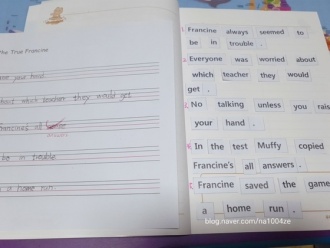 The True Francine
your hand.
which teacher they would get.
Francine's all
be in trouble.
a home run.
1. Francine always seemed to
be in trouble .
2. Everyone was worried about
which teacher they would
get .
No talking unless you rais
your hand .
In the test Muffy copied
Francine's all answers .
Francine saved the game
a home run .
blog.naver.com/na1004ze